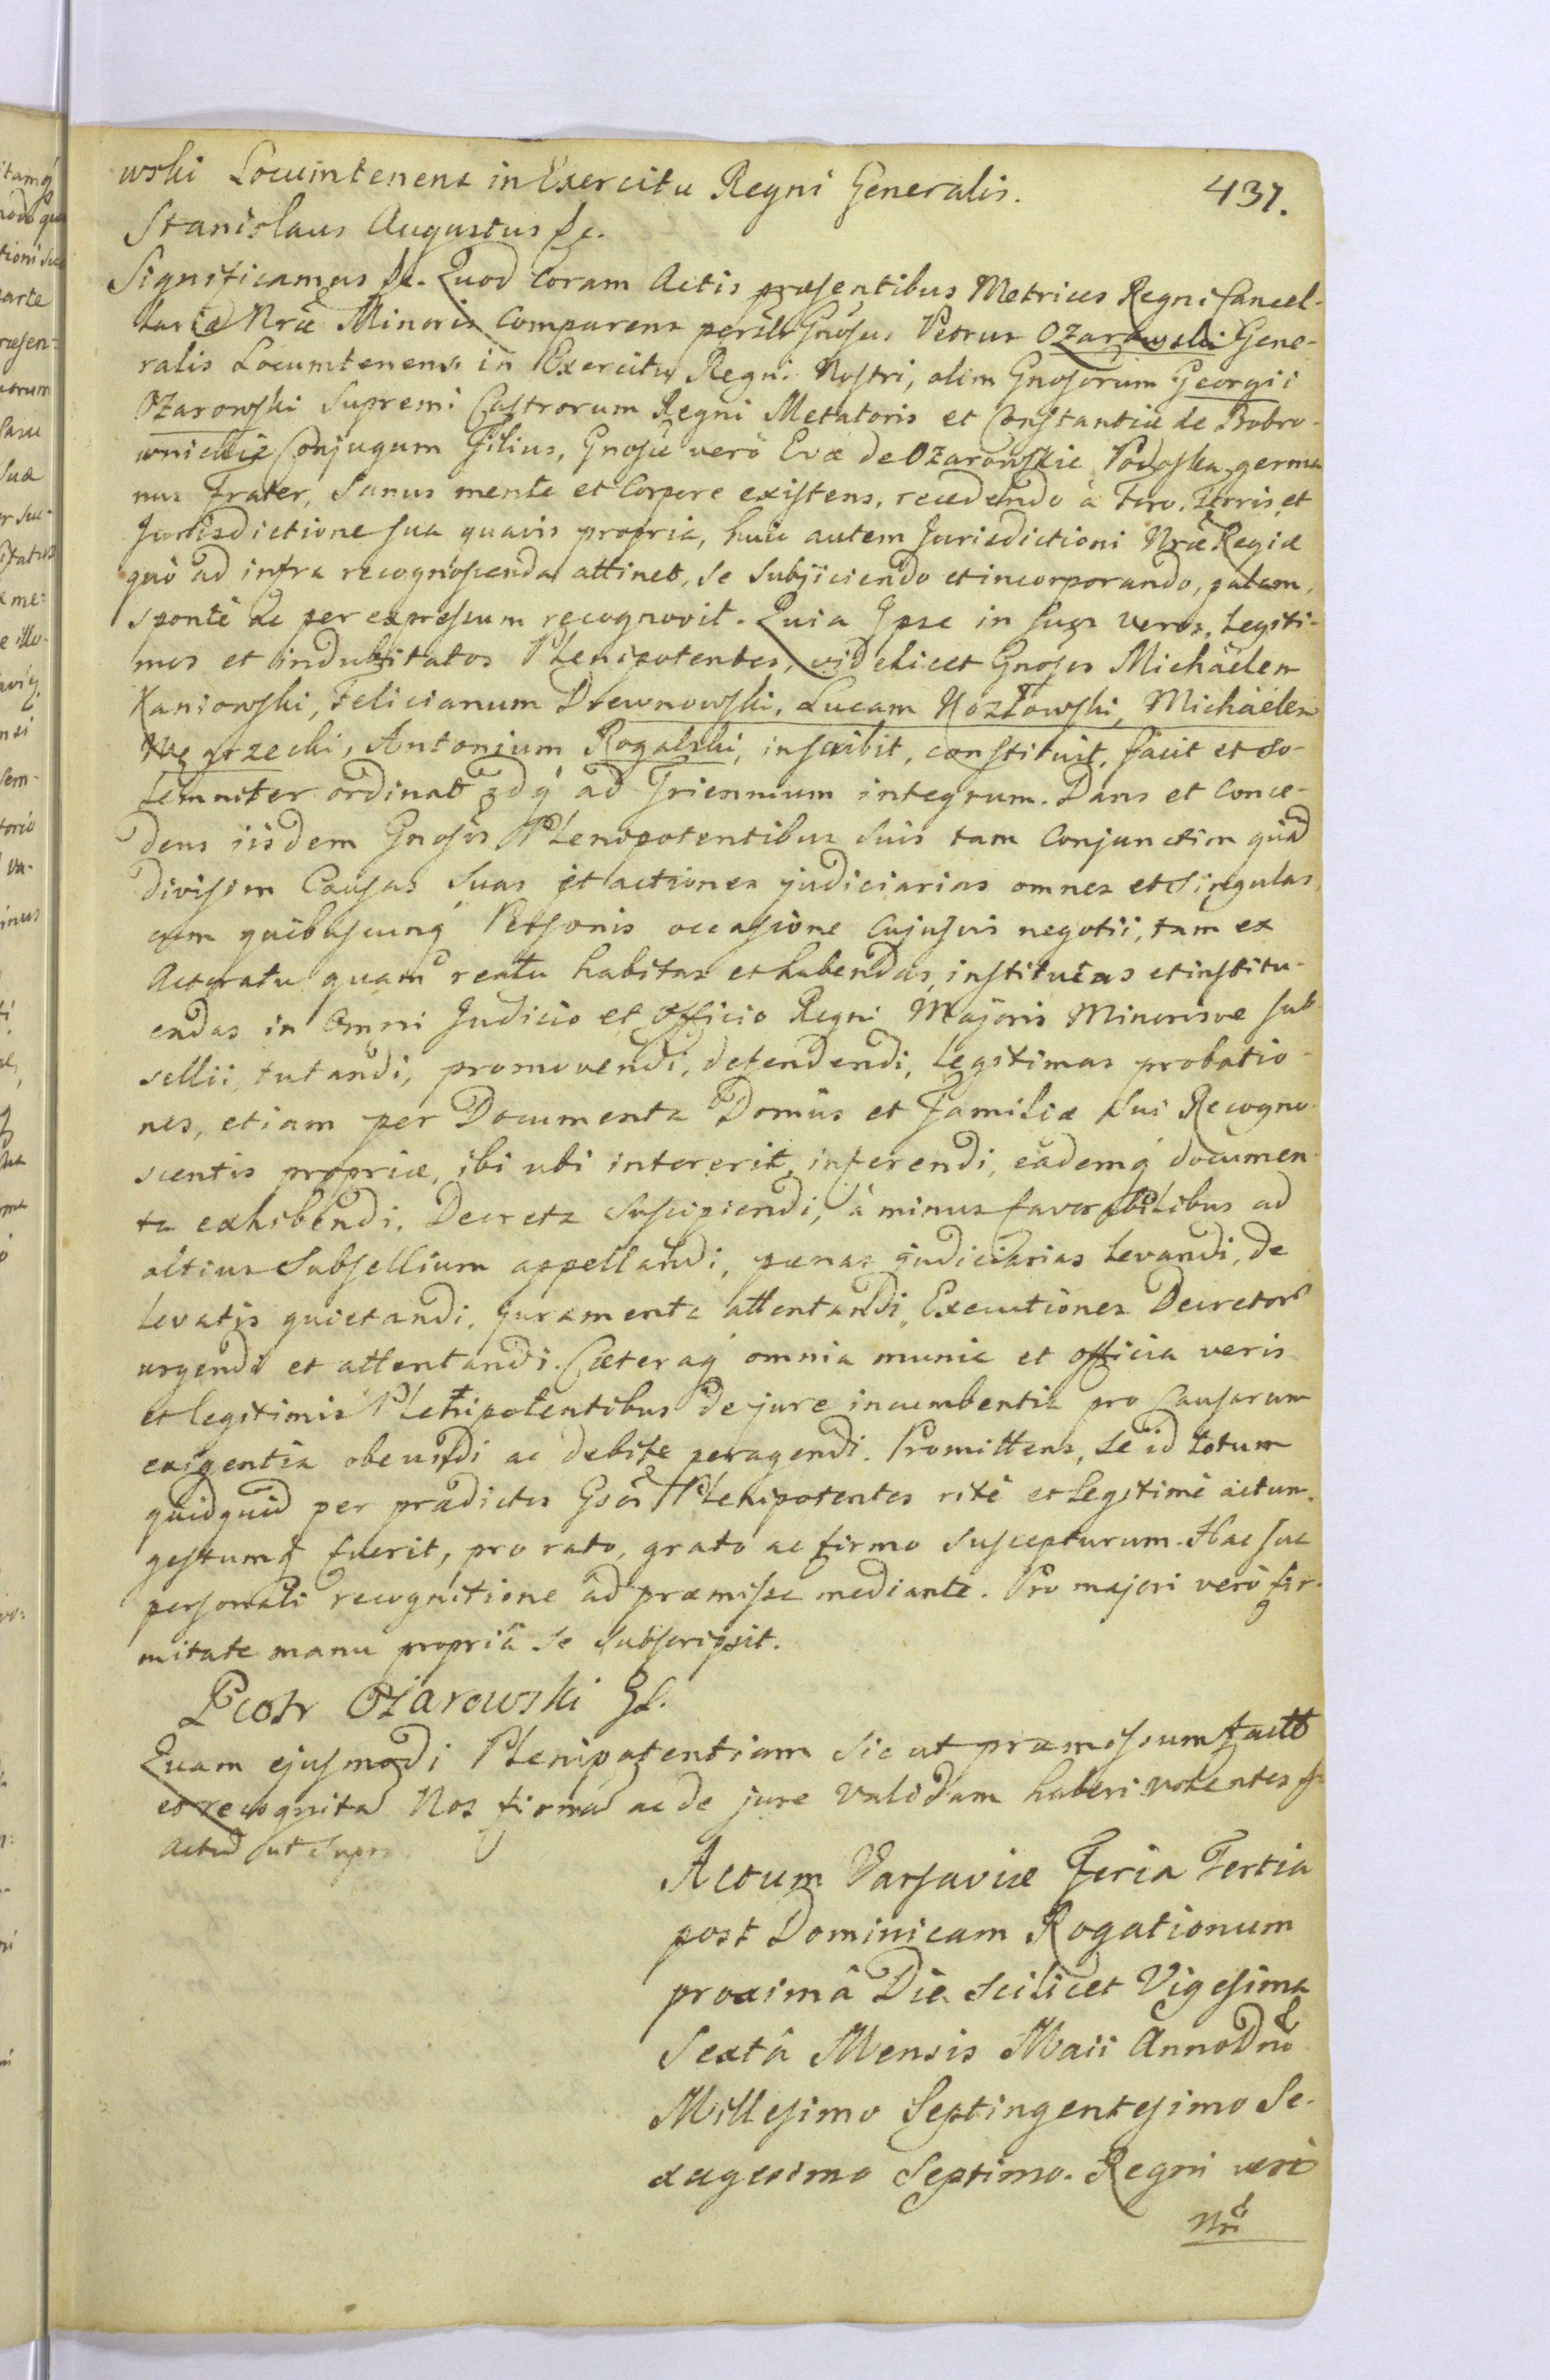 437.
wski Locumtenens in Exercitu Regni Generalis.
Stanislaus Augustus &c.
Significamus &c. Quod Coram Actis præsentibus Metrices Regni Cancel-
lariæ Nræ Minoris Comparens persлr Gnosus Petrus Ożarowski Gene-
ralis Locumtenens in Exercitu Regni Nostri, olim Gnosorum Georgii
Ożarowski Supremi Castrorum Regni Metatoris et Constantiæ de Bobro-
wnickie Conjugum Filius, Gnosæ verò Evæ de Ożarowskie Podoska germa
nus Frater, Sanus mente et Corpore existens, recedendo à Foro, Terris, et
Jurisdictione sua quavis propria, huic autem Jurisdictioni Nræ Regiæ
quò ad infra recognoscenda attinet, se subjiciendo et incorporando, palam,
spontè ac per expressum recognovit. Quia Ipse in suos veros, legiti-
mos et indubitatos Plenipotentes, videlicet Gnosos Michäelem
Kaniowski, Felicianum Drewnowski, Lucam Kozłowski, Michäelem
Węgrzecki, Antonium Rogalski, inscribit, constituit, facit et so-
lemniter ordinat idq́ ad Triennium integrum. Dans et Conce-
dens iisdem Gnosis Plenipotentibus suis tam Conjunctim quã
divisim Causas suas et actiones judiciarias omnes et singulas
cum quibuscunq́ Personis occasione Cujusvis negotii, tam ex
Actoratu quam reatu habitas et habendas, institutas et institu-
endas in Omni Judicio et Officio Regni Majoris Minorisve sub-
sellii, tutandi, promovendi, defendendi, legitimas probatio-
nes, etiam per Documenta Domûs et Familiæ sui Recogno-
scentis propriæ, ibi ubi intererit, inferendi, eademq́ documen-
ta exhibendi. Decreta suscipiendi, à minus favorabilibus ad
altius Subsellium appellandi, pænas judiciarias levandi, de
levatis quietandi, juramenta attentandi, Executiones Decretorũ
urgendi et attentandi. Cæteraq́ omnia munia et officia veris
et legitimis Plenipotentibus de jure incumbentia pro Causarum
exigentia obeundi ac debite peragendi. Promittens, se id totum
quidquid per prædictos Gsos Plenipotentes ritè et legitimè actum,
gestumq́ fuerit, pro rato, grato ac firmo suscepturum. Hac sua
personali recognitione ad præmissa mediante. Pro majori verò fir-
mitate manu propriâ se subscripsit.
Piotr Ożarowski GL.
Quam ejusmodi Plenipotentiam sic ut præmissum factã
et recognitã Nos firmã ac de jure Validam haberi volentes &c
Actũ ut Supra
Actum Varsaviæ Feria Tertia
post Dominicam Rogationum
proximâ Die scilicet Vigesima
Sextâ Mensis Maii Anno Dni
Millesimo Septingentesimo Se-
xagesimo Septimo. Regni verò
Nri